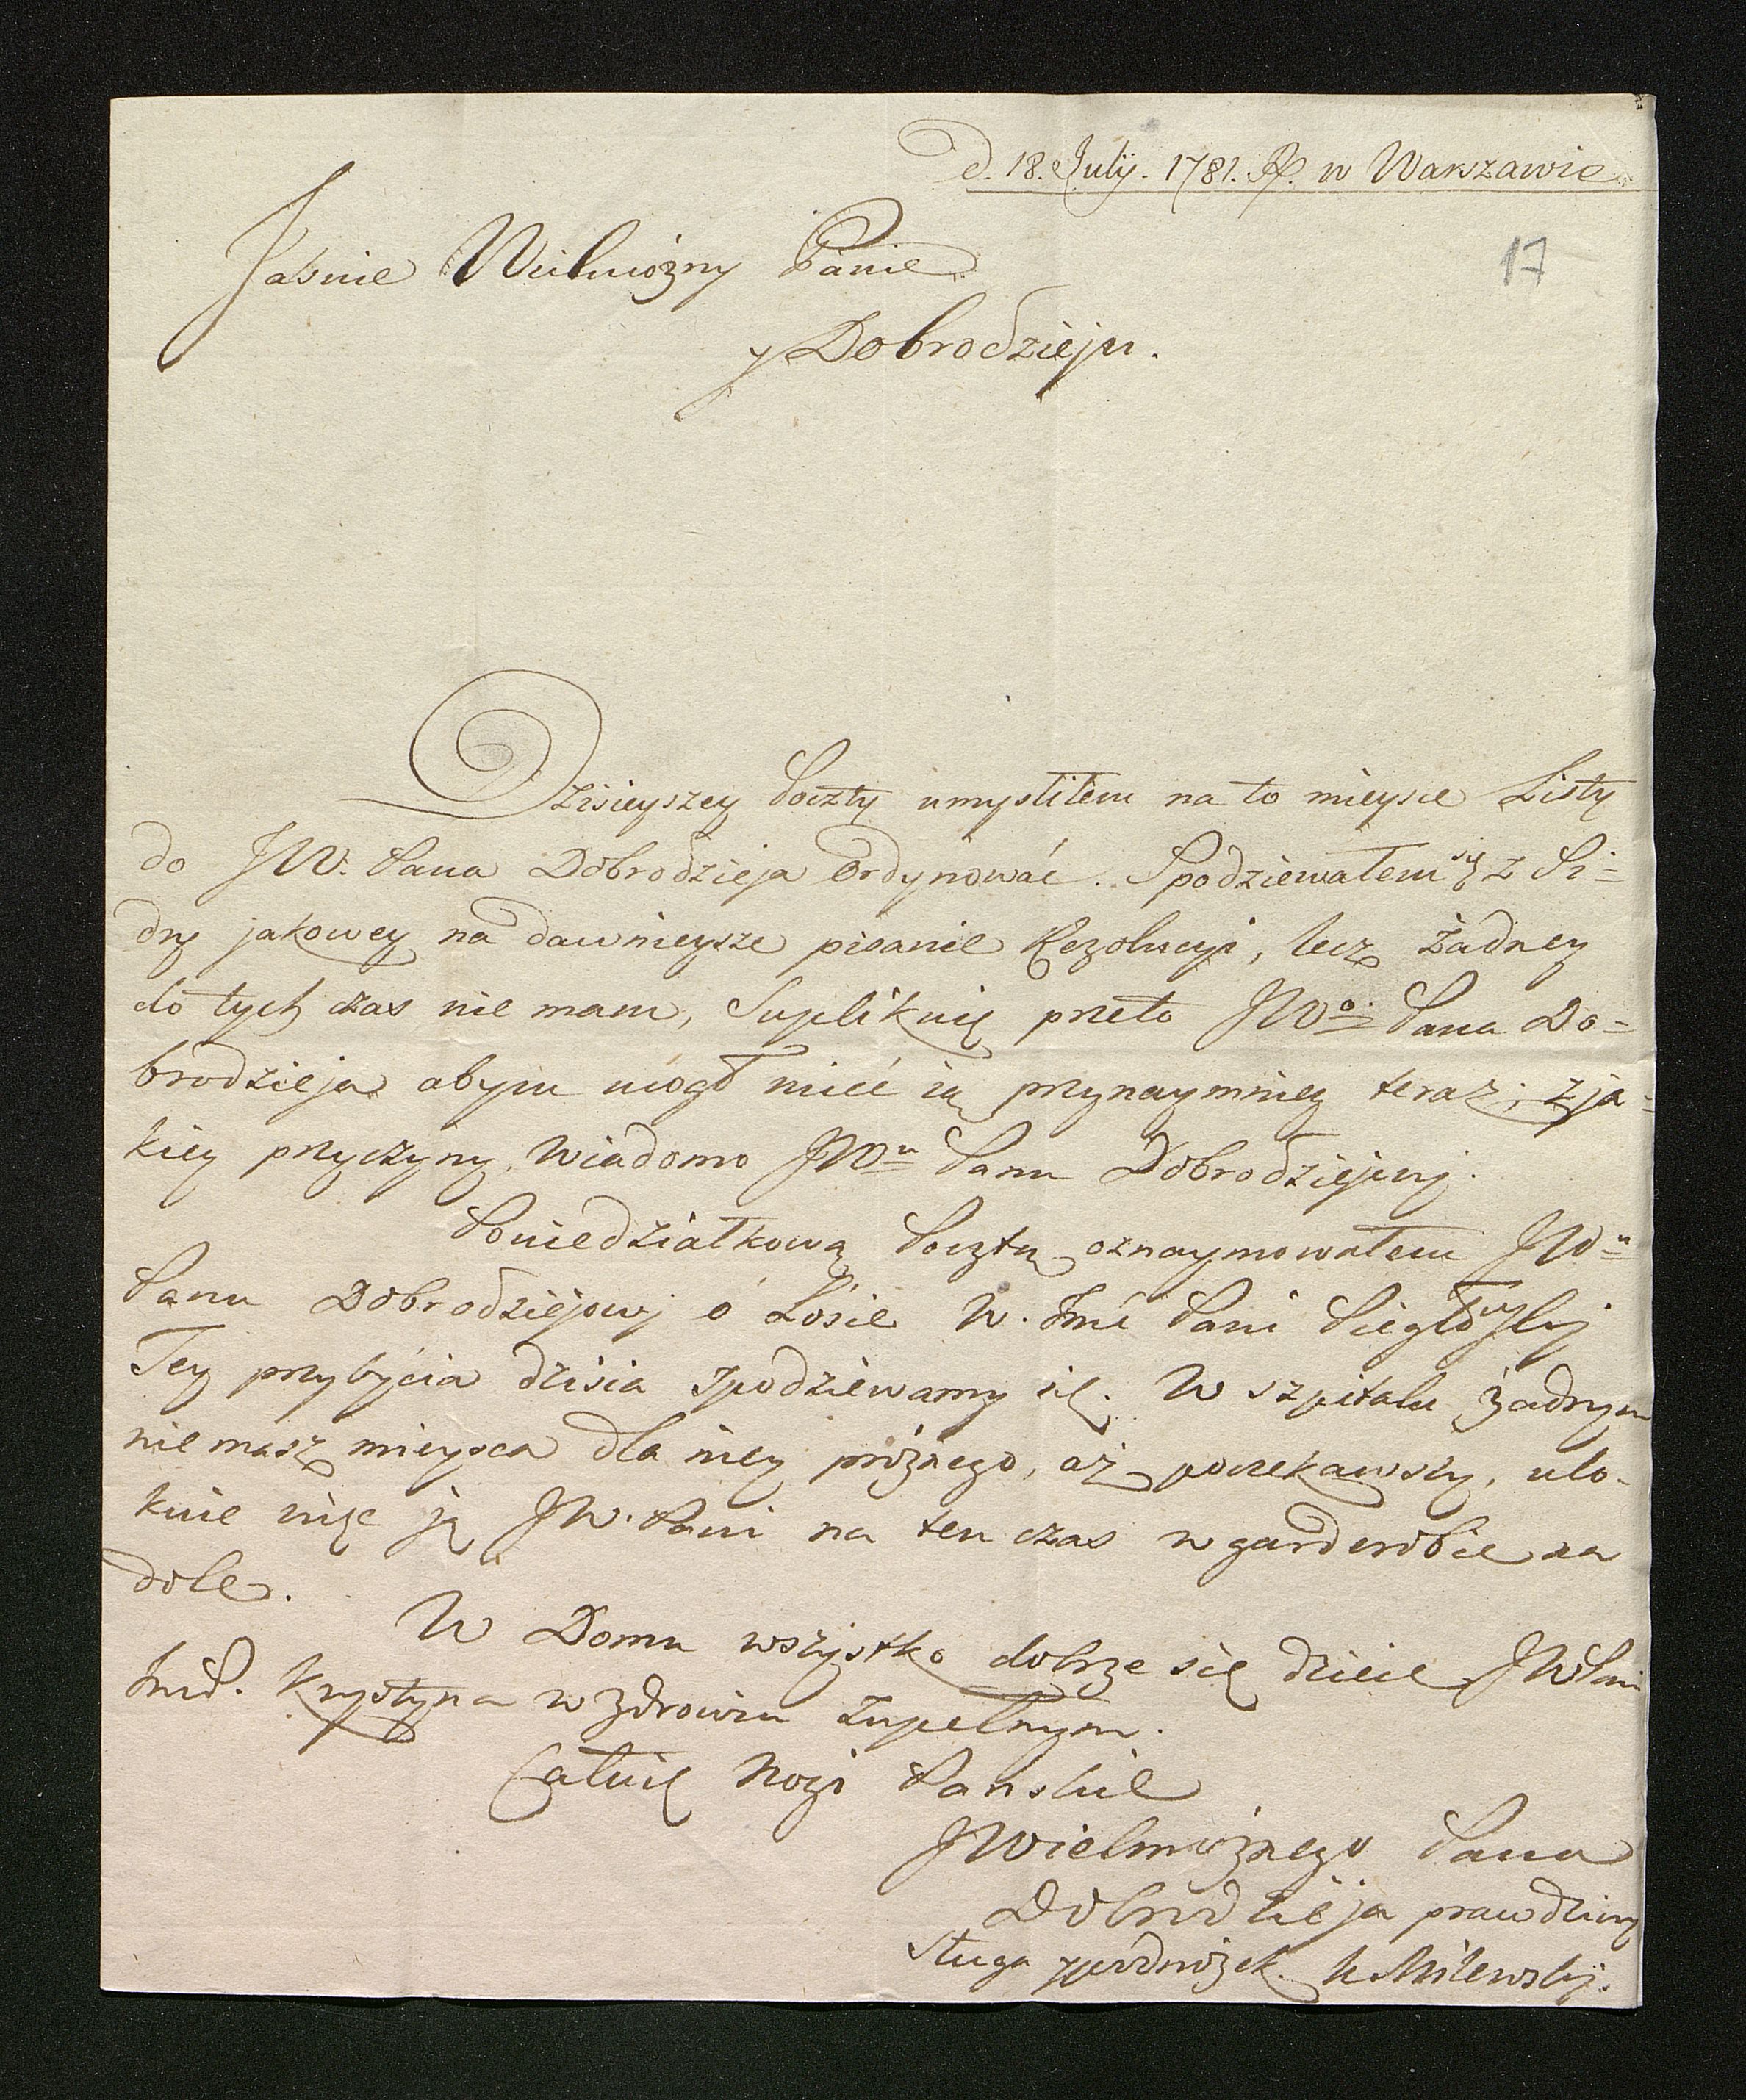 D. 18. July. 1781. R. w Warszawie
17
Jasnie Wielmożny Panie
y Dobrodzieju.
Dzisieyszey Poczty umysliłem na to mieysce Listy
do JW. Pana Dobrodzieja Ordynować. Spodziewałem się z Si=
dry jakowey na dawnieysze pisanie Rezolucyi, lecz żadney
do tych czas nie mam, Suplikuię przeto JWo Pana Do=
brodzieja abym mogł mieć ią przynaymniey teraz; z ja=
kiey przyczyny, wiadomo JWu Panu Dobrodziejowj.
Poniedziałkową Pocztą oznaymowałem JWu
Panu Dobrodziejowj o Łosie W. Jmć Pani
Tey przybycia dzisia spodziewamy się. W szpitalu żadnym
nie masz mieysca dla niey prożnego, aż poczekawszy, ulo-
kuie więc ją JW. Pani na ten czas w garderobie na
dole.
W Domu wszystko dobrze się dzieie JWPani
Krystyna w zdrowiu zupełnym.
Całuię Nogi Panskie
JWielmożnego Pana
Dobrodzieja prawdziwy
Sługa y podnożek. Milewskij.